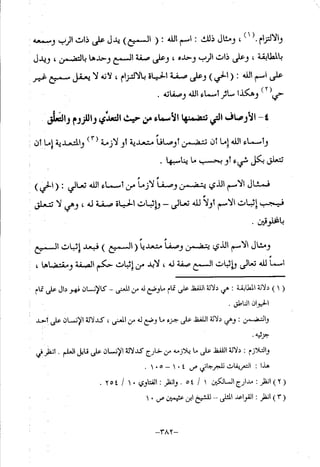 والالتزام(١). ومثال ذلك: اسم الله: (السميع) يدل على ذات الرب وسمعه
بالمطابقة، وعلى الذات وحدها، وعلى صفة السمع وحدها بالتضمن، ويدل
على اسم الله: (الحي) وعلى صفة الحياة بالالتزام، وكذا
حي(٢) وهكذا سائر أسماء الله وصفاته.
٤- الأوصاف التي تضمنتها الأسماء من حيث التعدي واللزوم والتعلق
وأسماء الله إما أن تتضمن أوصافا متعدية أو لازمة(٣) والمتعدية إما أن
تتعلق بكل شيء أو بحسب ما يتعلق بها.
فمثال الاسم الذي يتضمن وصفا لازما من أسماء الله تعالى: (الحي)
فيجب إثبات الاسم أولا لله تعالى - وإثبات الحياة صفة له، وهي لا تتعلق
بالمخلوقين.
ومثال الاسم الذي يتضمن وصفا متعديا (السميع) فيجب إثبات السميع
اسما لله تعالى وإثبات السمع صفة له، ولابد من إثبات حكم الصفة ومقتضاها،
(١) دلالة المطابقة: هي دلالة اللفظ على تمام ما وضع له من المسمى - كالإنسان فإنه يدل على تمام
الحيوان الناطق.
والتضمن: وهي دلالة اللفظ على جزء ما وضع له من المسمى، كدلالة الإنسان على أحد
جزئيه.
والالتزام: دلالة اللفظ على
هذا: التعريفات للجرجاني ص ١٠٤ - ١٠٥.
(٢) انظر: مدارج السالكين ١ / ٥٤. وانظر: الفتاوى ١٠ / ٢٥٤.
(٣) انظر: القواعد المثلى - للشيخ ابن عثيمين ص ١٠
-٣٨٢-